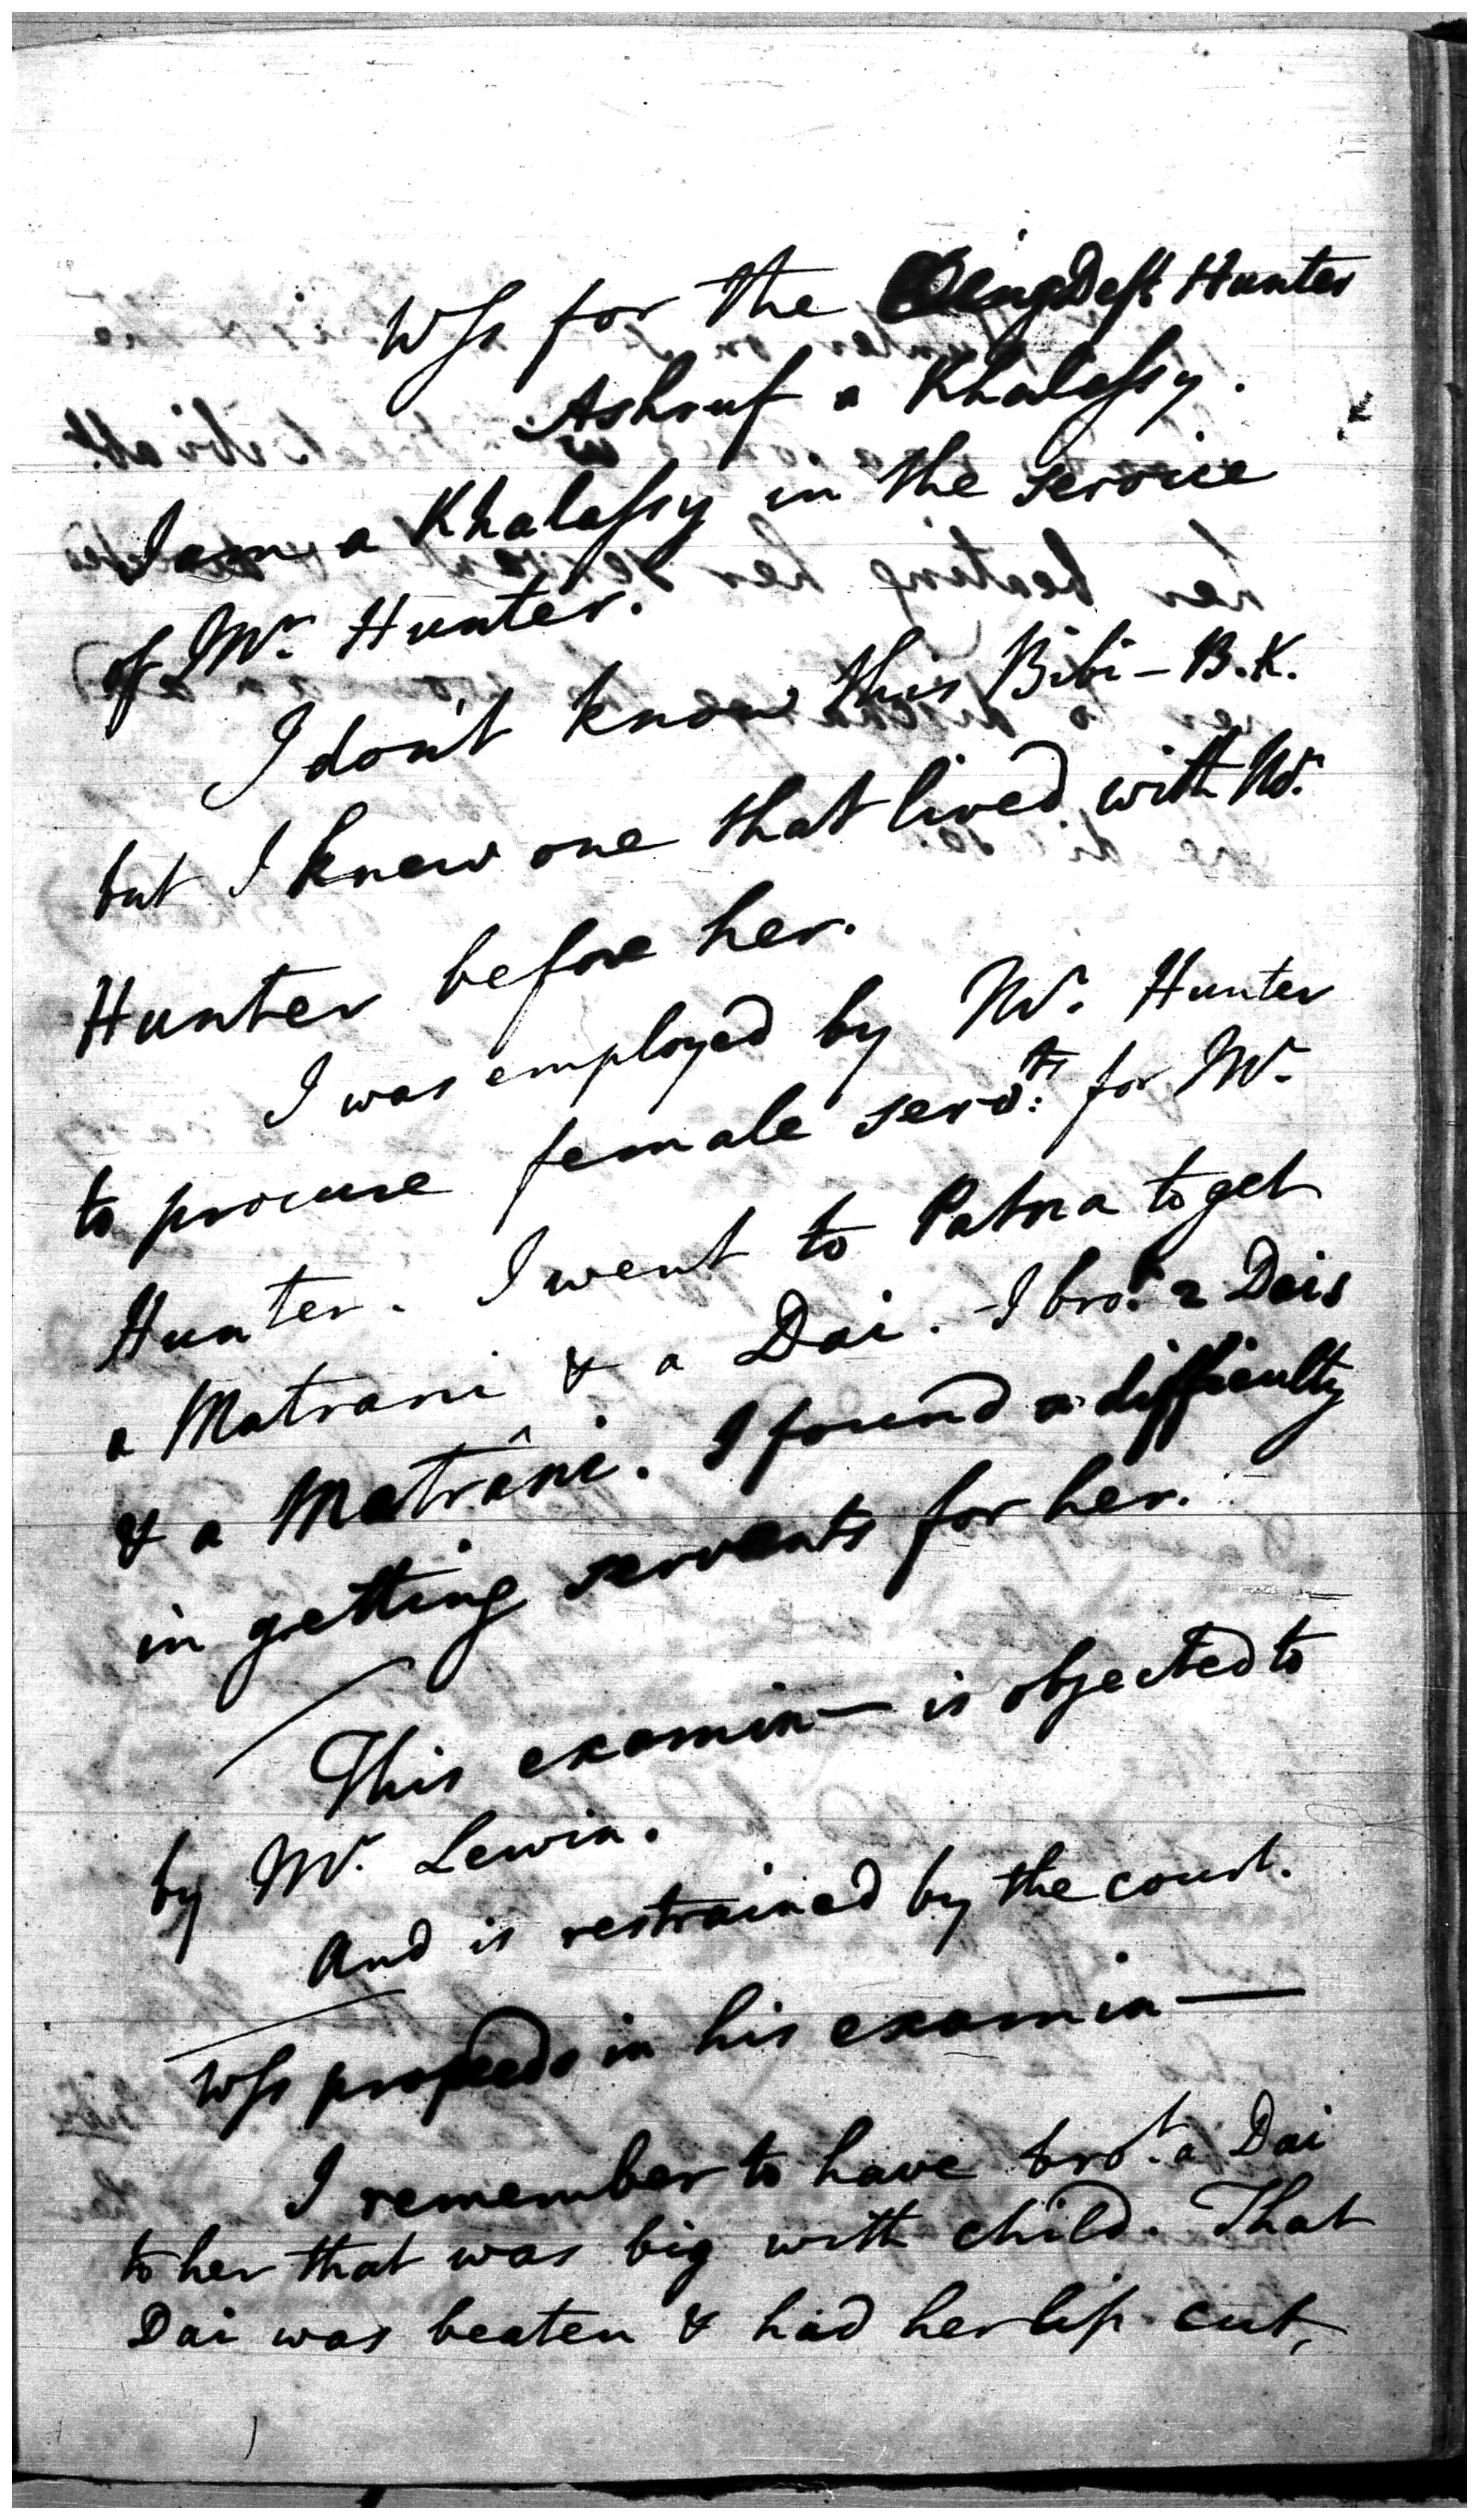 Wſs for the Deft Hunter
Ashruf a Khalaſsy.
I am a Khalaſsy in the service
of Mr. Hunter.
I don't know this Bibi – B.K.
but I knew one that lived with Mr.
Hunter before her.
I was employed by Mr. Hunter
to procure female servts. for Mr.
Hunter. I went to Patna to get
a Matrani & a Dai. I brot. 2 Dais
& a Matrâni. I found a difficulty
in getting servants for her.
This examin— is objected to
by Mr. Lewin.
And is restrained by the court.
Wſs proceeds in his examin—
I remember to have brot. a Dai
to her that was big with child. That
Dai was beaten & had her lip cut,